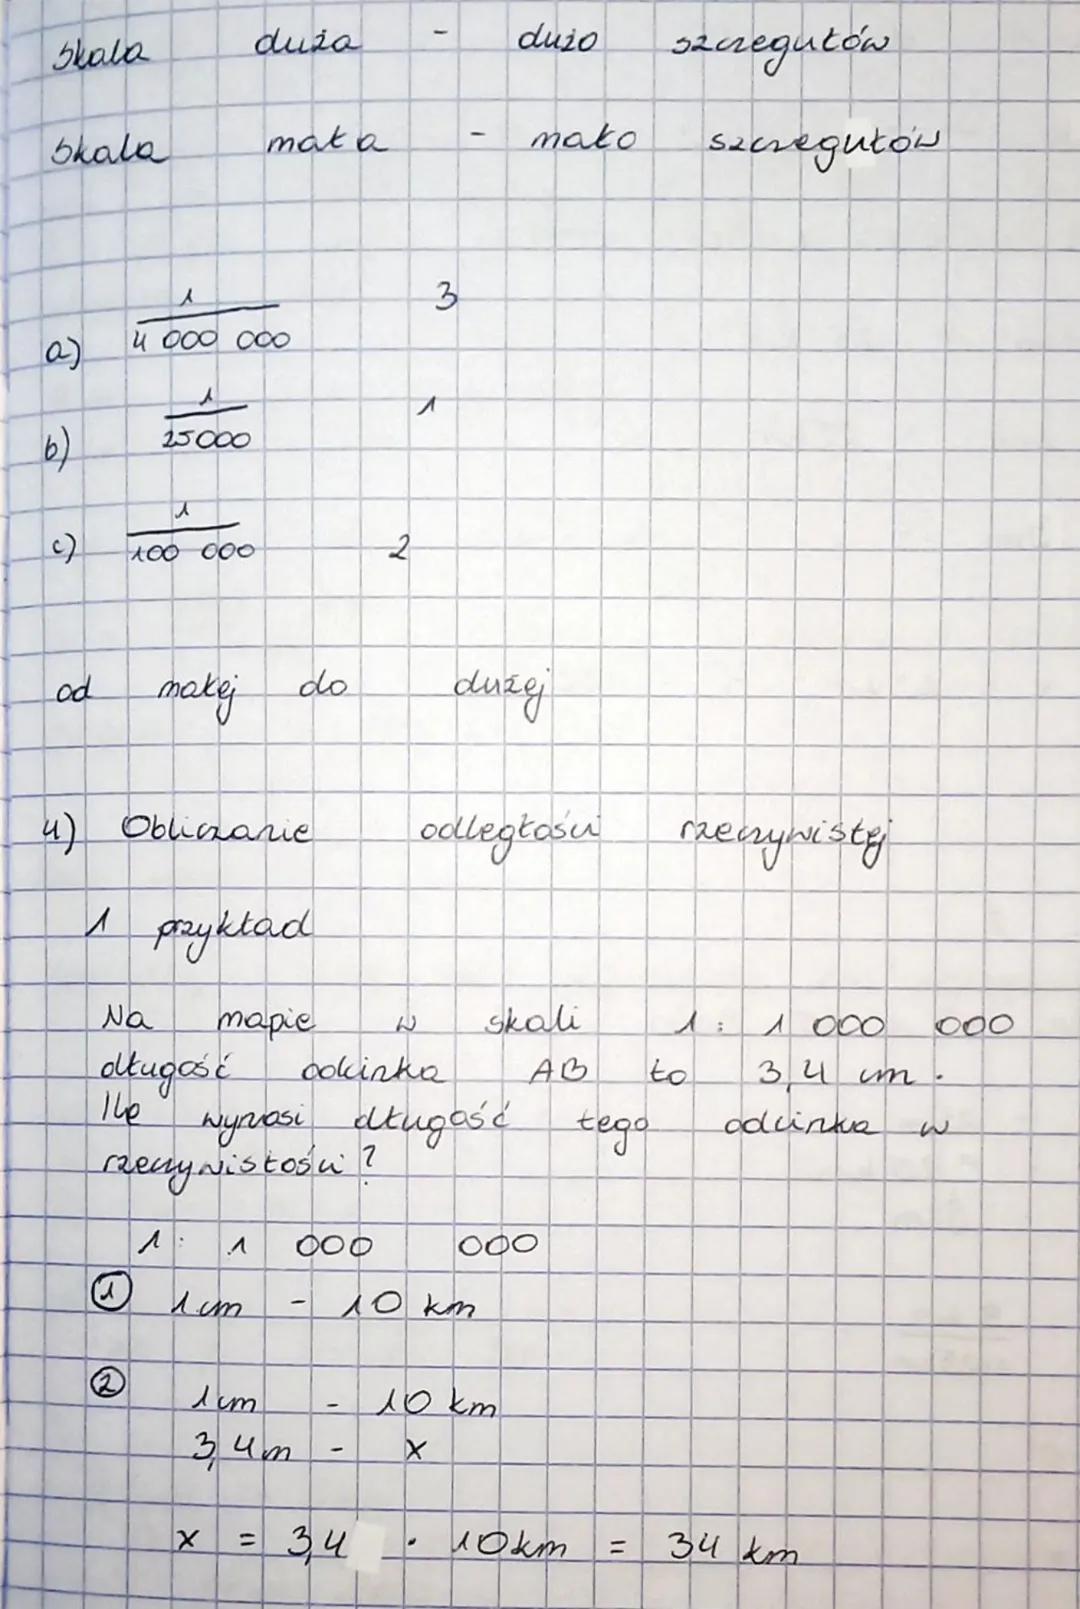 Skala duża - dużo szczegułów
Skala mała - mało szczegułów
a) 1/4 000 000 3
b) 1/25000 1
c) 1/100 000 2
od małej do dużej
4) Obliczanie odległości rzeczywistej
1 przykład
Na mapie w skali 1: 1 000 000
długość odcinka AB to 3,4 cm.
Ile wynosi długość tego odcinka w
rzeczywistości?
1: 1 000 000
① 1cm - 10 km
② 1cm - 10 km
3,4m - x
x = 3,4 · 10km = 34 km